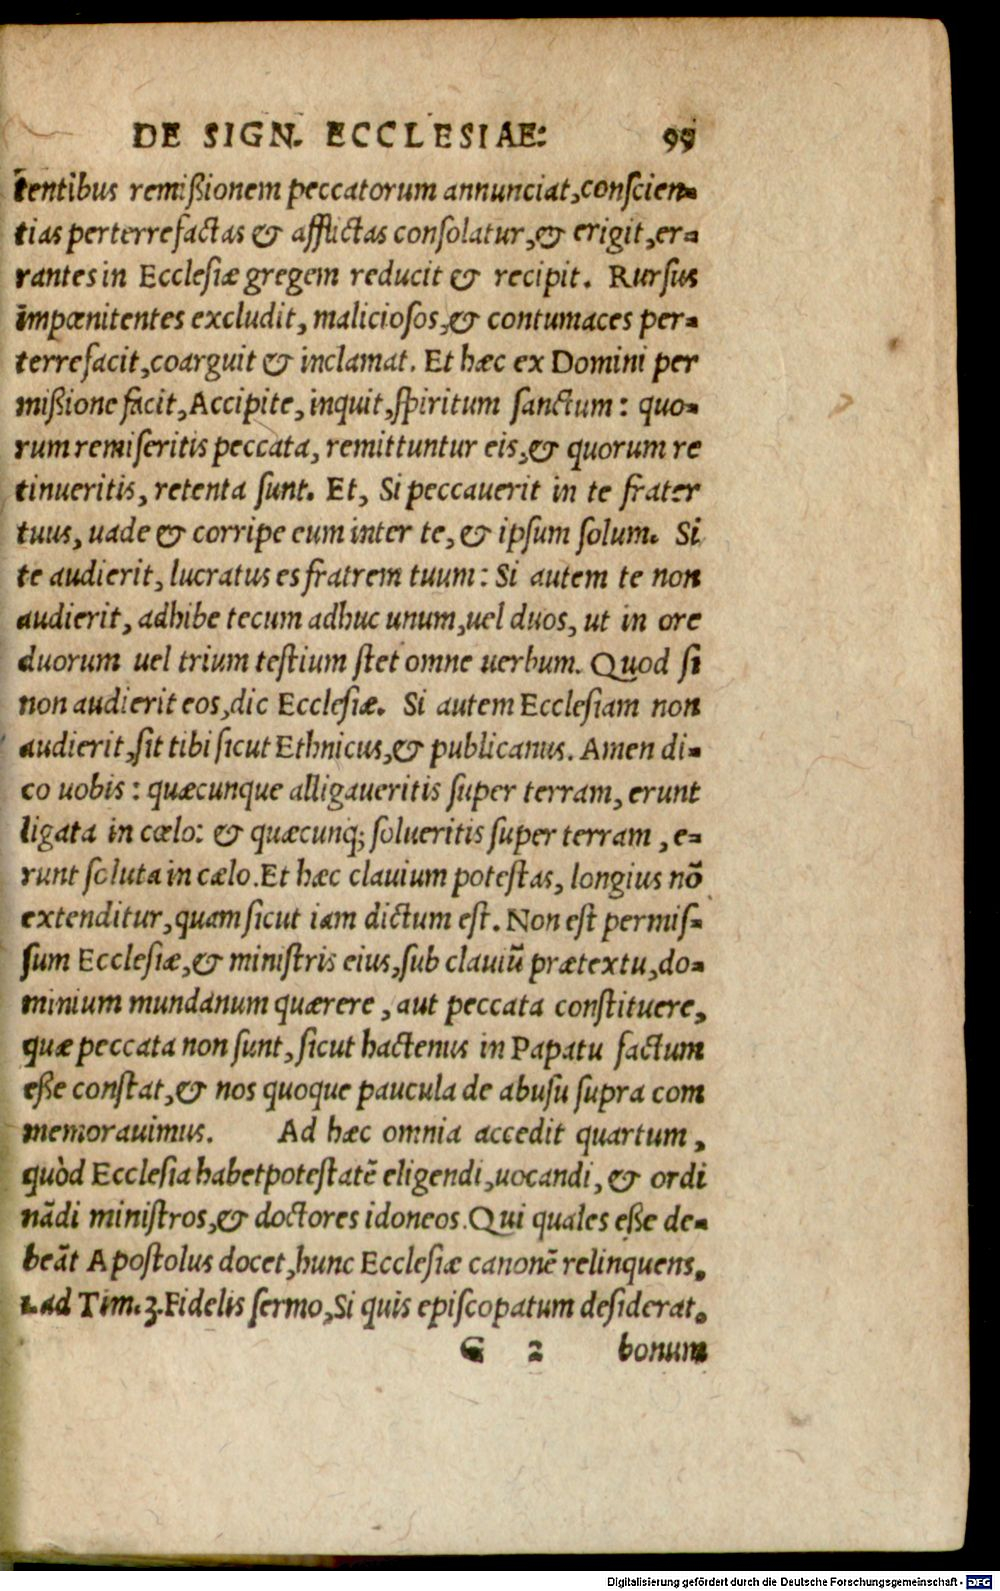 DE SIGN. ECCLESIAE: 99
tentibus remißionem peccatorum annunciat, conscien-
tias perterrefactas & afflictas consolatur, & erigit, er-
rantes in Ecclesiæ gregem reducit & recipit. Rursus
impœnitentes excludit, maliciosos, & contumaces per-
terrefacit, coarguit & inclamat. Et hæc ex Domini per
mißione facit, Accipite, inquit, spiritum sanctum: quo-
rum remiseritis peccata, remittuntur eis, & quorum re
tinueritis, retenta sunt. Et, Si peccauerit in te frater
tuus, uade & corripe eum inter te, & ipsum solum. Si
te audierit, lucratus es fratrem tuum: Si autem te non
audierit, adhibe tecum adhuc unum, uel duos, ut in ore
duorum uel trium testium stet omne uerbum. Quod si
non audierit eos, dic Ecclesiæ. Si autem Ecclesiam non
audierit, sit tibi sicut Ethnicus, & publicanus. Amen di-
co uobis: quæcunque alligaueritis super terram, erunt
ligata in cœlo: & quæcunq; solueritis super terram, e-
runt soluta in cælo. Et hæc clauium potestas, longius nō
extenditur, quam sicut iam dictum est. Non est permis-
sum Ecclesiæ, & ministris eius, sub clauiū prætextu, do-
minium mundanum quærere, aut peccata constituere,
quæ peccata non sunt, sicut hactenus in Papatu factum
eße constat, & nos quoque paucula de abusu supra com
memorauimus. Ad hæc omnia accedit quartum,
quòd Ecclesia habet potestatē eligendi, uocandi, & ordi
nādi ministros, & doctores idoneos. Qui quales eße de-
beāt Apostolus docet, hunc Ecclesiæ canonē relinquens.
1. ad Tim. 3. Fidelis sermo, Si quis episcopatum desiderat.
G 2 bonum
Digitalisierung gefördert durch die Deutsche Forschungsgemeinschaft - DFG